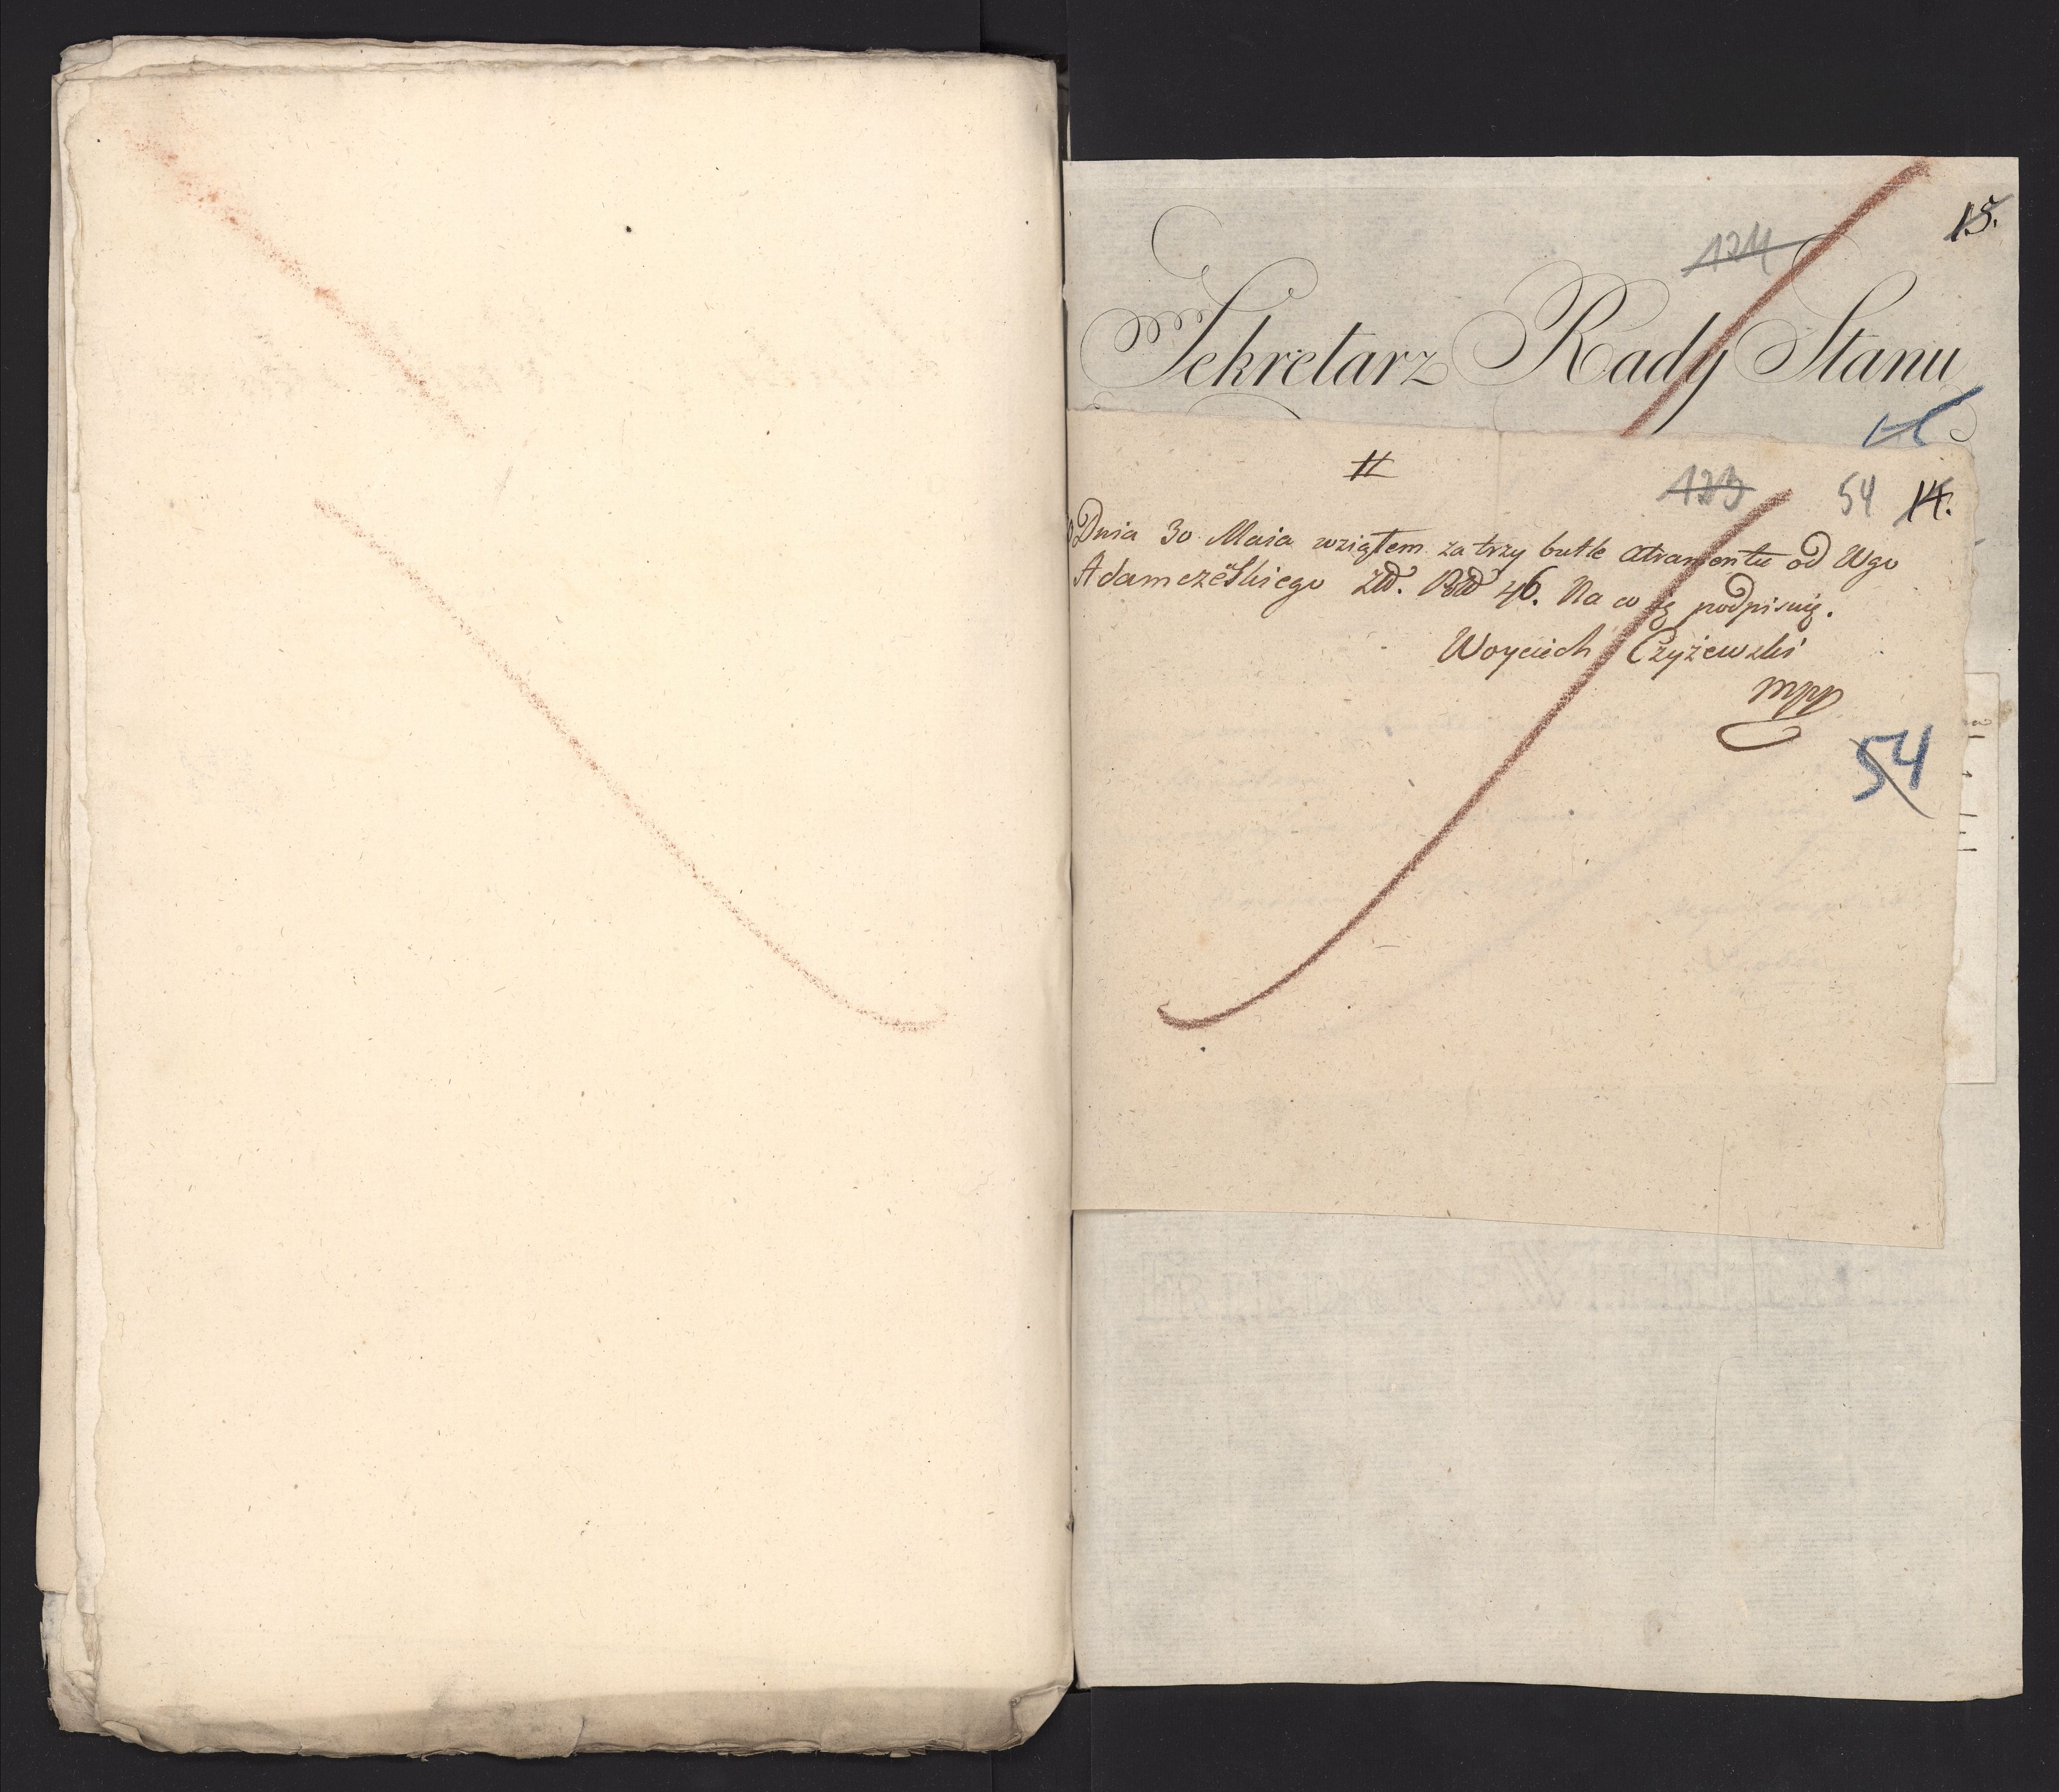 15.
124
Sekretarz Rady Stanu
11
123 54 14.
Dnia 30 Maia wziąłem za trzy butle atramentu od Wgo
Adamczeskiego 46. Na co się podpisuię.
Woyciech Czyżewski
mpp
54